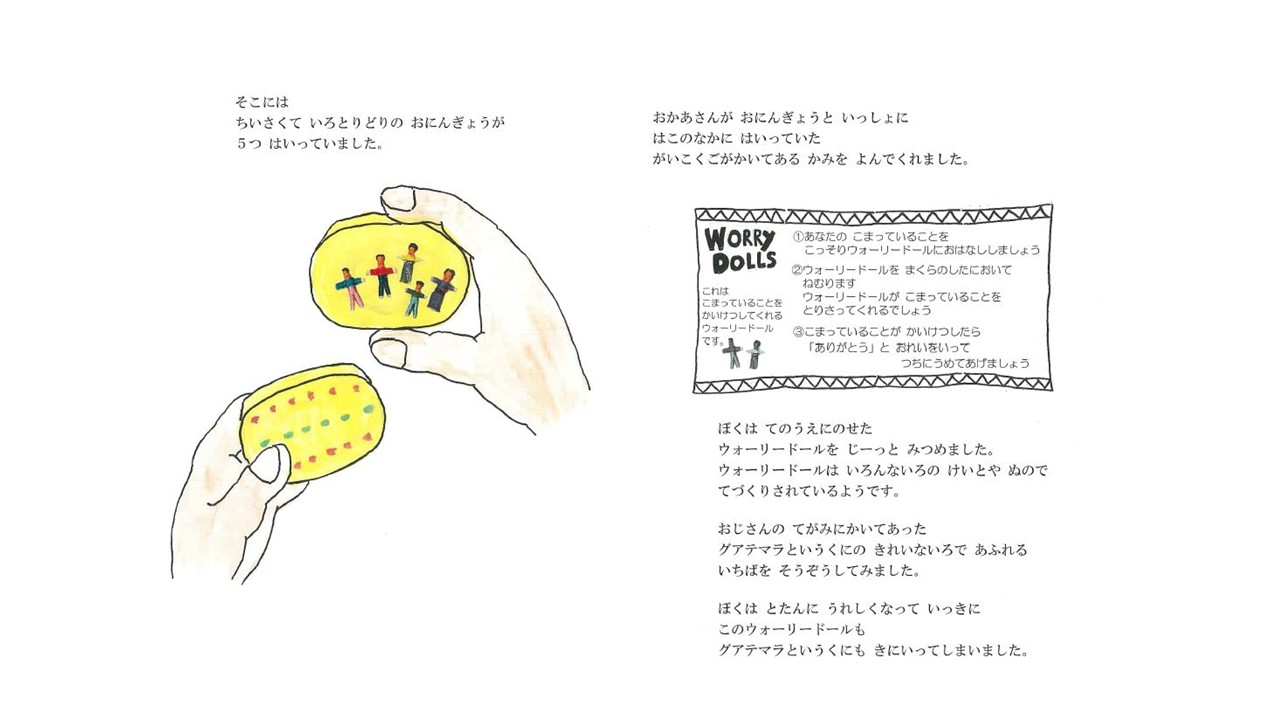 そこには
ちいさくて いろとりどりの おにんぎょうが
５つ はいっていました。
おかあさんが おにんぎょうと いっしょに
はこのなかに はいっていた
がいこくごがかいてある かみを よんでくれました。
WORRY
DOLLS
これは
こまっていることを
かいけつしてくれる
ウォーリードール
です。
①あなたの こまっていることを
こっそりウォーリードールにおはなししましょう
②ウォーリードールを まくらのしたにおいて
ねむります
ウォーリードールが こまっていることを
とりさってくれるでしょう
③こまっていることが かいけつしたら
「ありがとう」と おれいをいって
つちにうめてあげましょう
ぼくは てのうえにのせた
ウォーリードールを じーっと みつめました。
ウォーリードールは いろんないろの けいとや ぬので
てづくりされているようです。
おじさんの てがみにかいてあった
グアテマラというくにの きれいないろで あふれる
いちばを そうぞうしてみました。
ぼくは とたんに うれしくなって いっきに
このウォーリードールも
グアテマラというくにも きにいってしまいました。